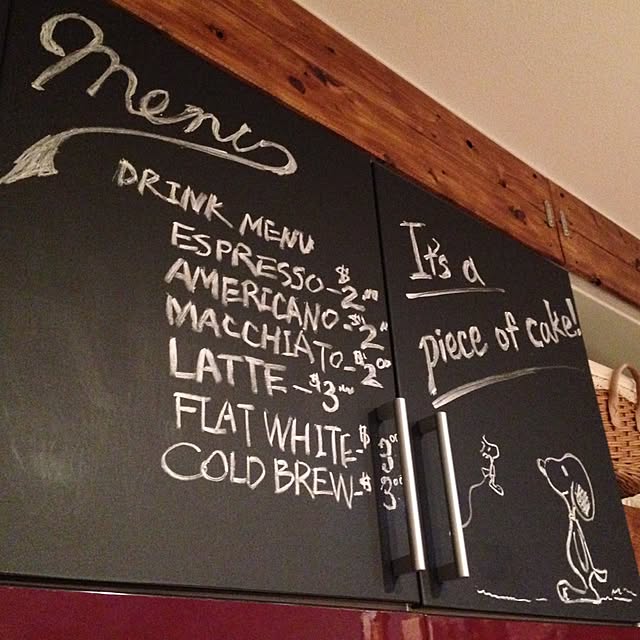 Menu
DRINK MENU
ESPRESSO-$2.00
AMERICANO-$2.00
MACCHIATO-$2.00
LATTE-$3.00
FLAT WHITE-$3.00
COLD BREW-$3.00
It's a
piece of cake!